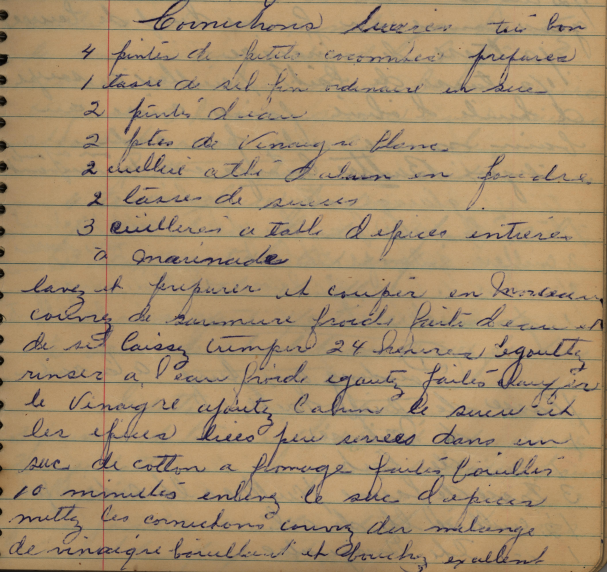 Cornichons Sucrés très bon
4 pintes de petits concombres préparés
1 tasse de sel fin ordinaire en sus
2 pintes d'eau
2 ptes de Vinaigre blanc
2 cuillié a thé d'alun en poudre
2 tasses de sucres
3 cuillères a table d'épices entières
à marinade
lavez et preparer et coupér en morceaux
couvrez de saumure froide faite d'eau et
de sel laissez trempér 24 heures egouttez
rinser a l'eau froide egoutez faites chauffer
le Vinaigre ajoutez l'alun le sucre et
les epices liées peu serrées dans un
sac de cotton a fromage faites bouillir
10 minutes enlevez le sac d'epices
mettez les cornichons couvrez du melange
de vinaigre bouillant et bouchez exellent